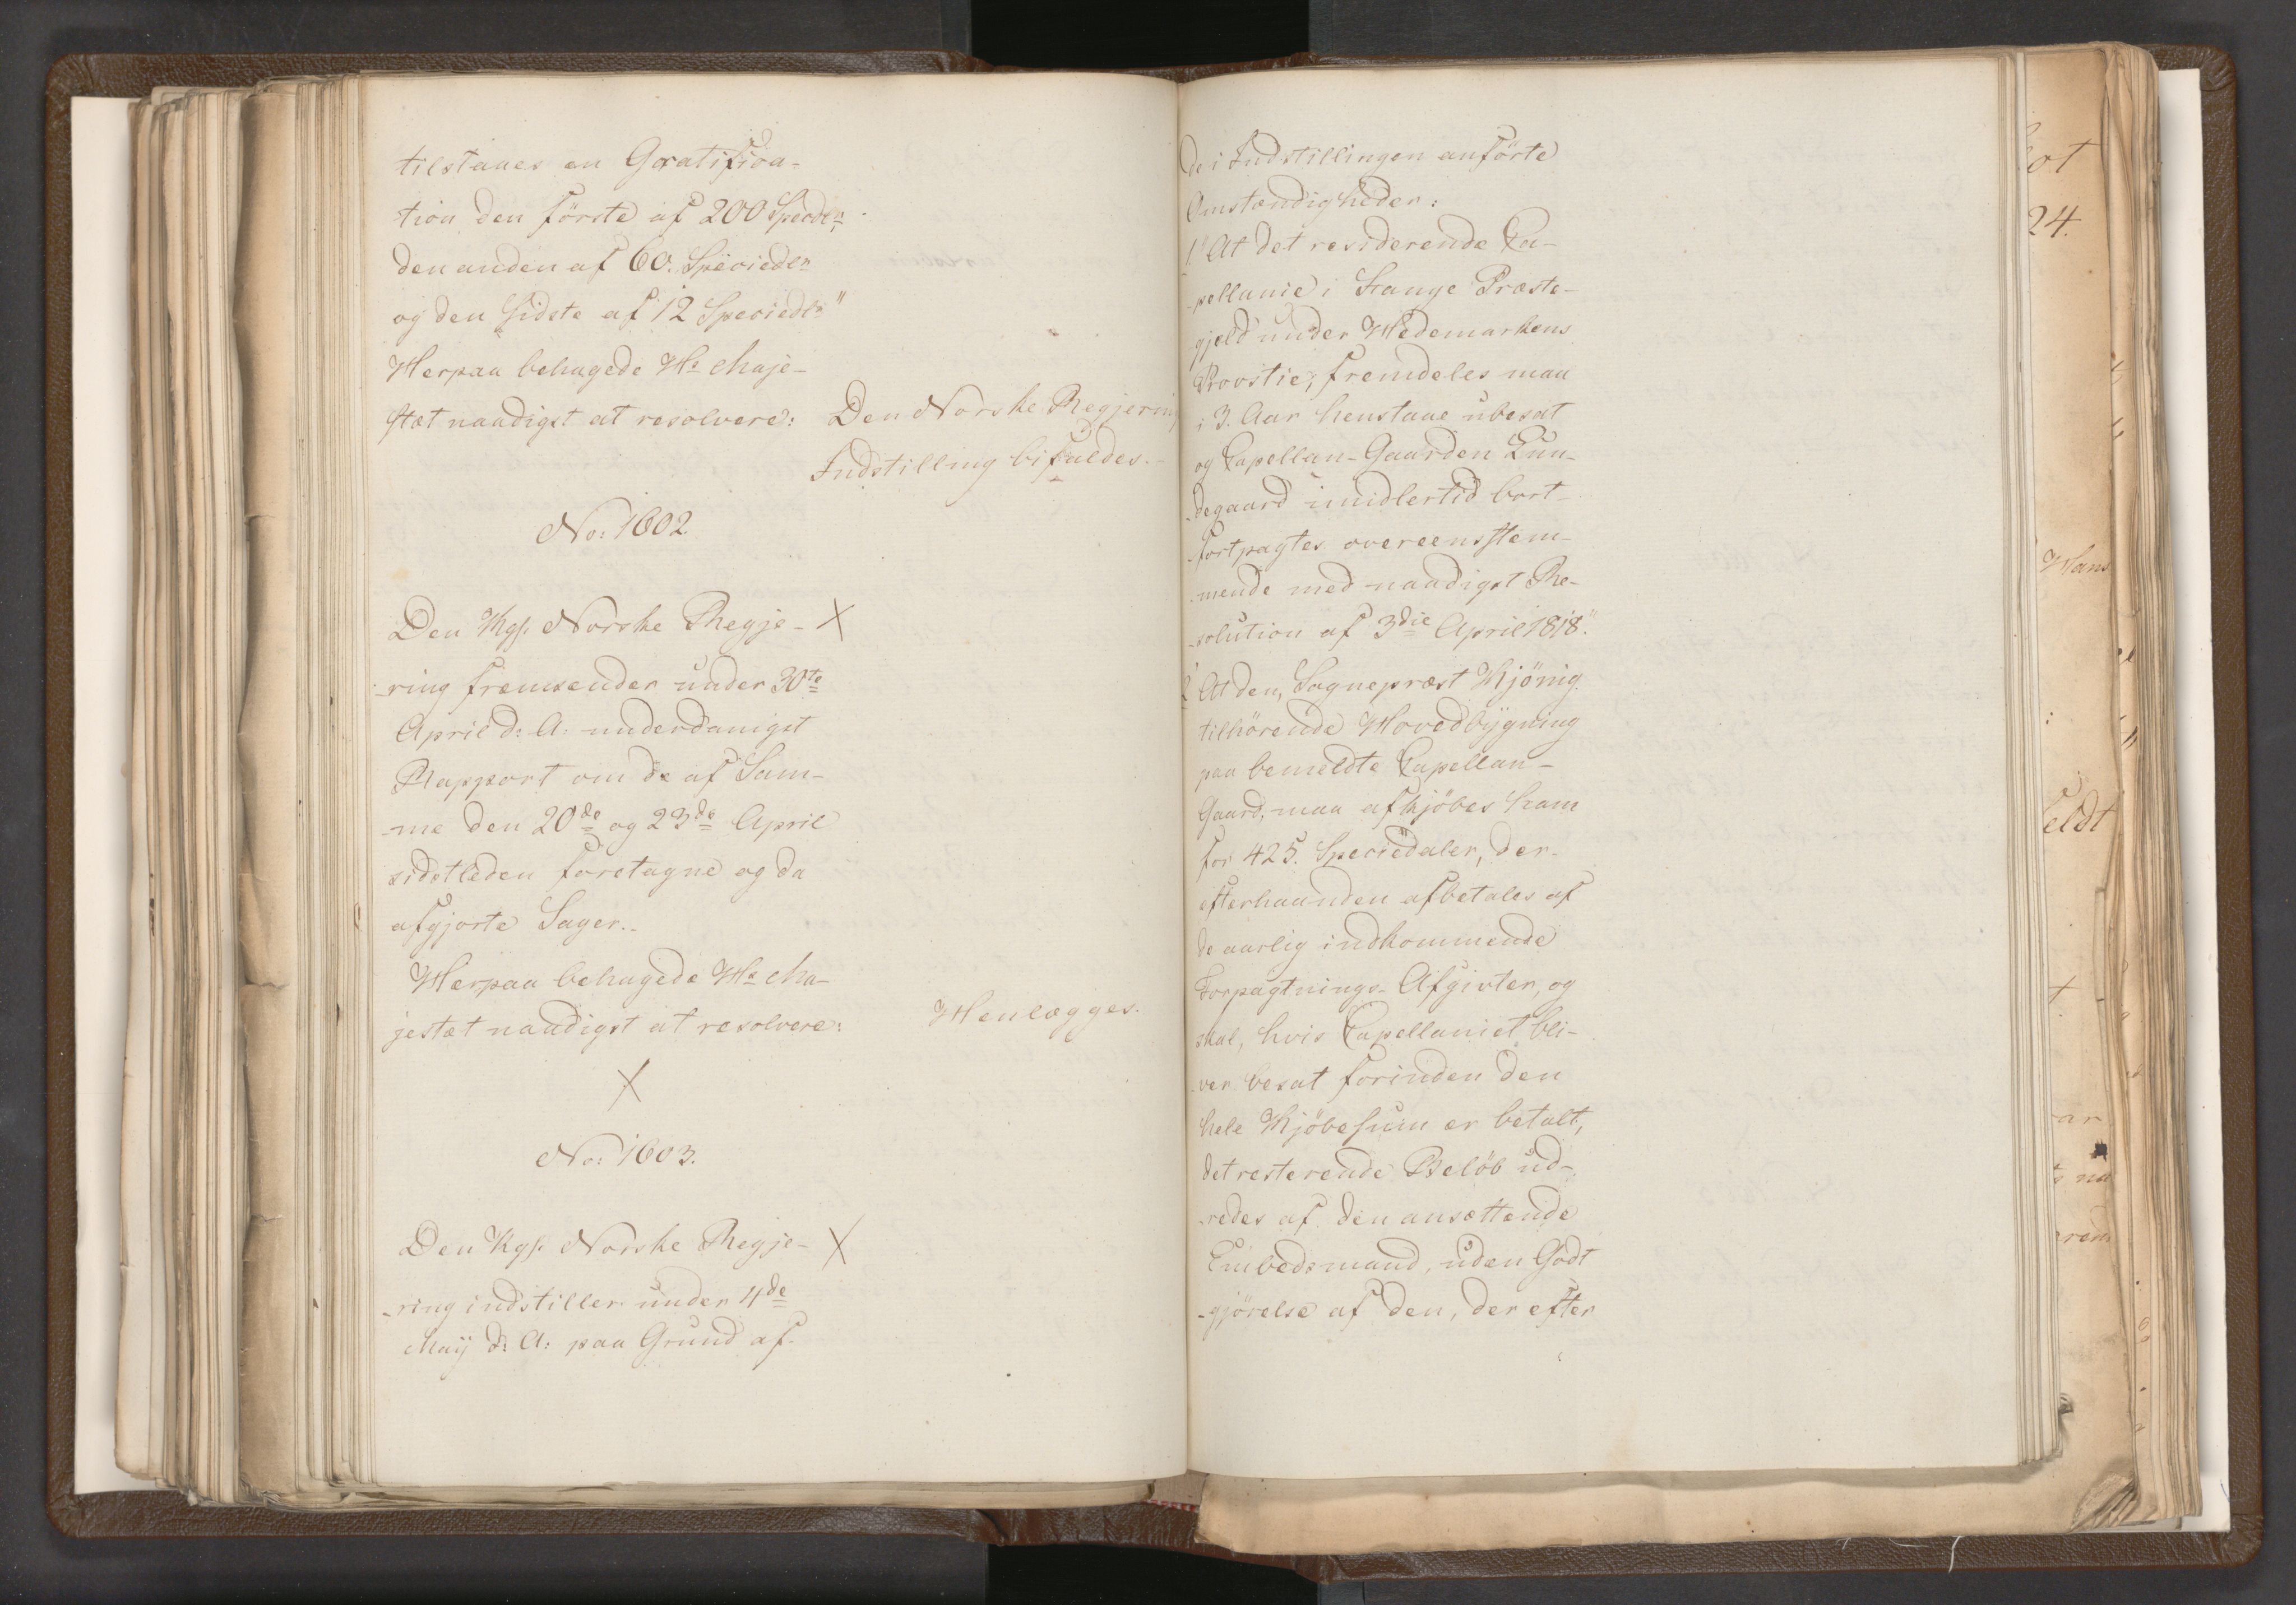 tilstaaes en Gratifica-
tion den förste af 200 Specdlr,
den anden af 60. Speciedlr
og den Sidste af 12 Speciedlr"
Herpaa behagede Hs Maje-
stæt naadigst at resolvere:
Den Norske Regjering
Indstilling bifaldes.
No: 1602.
Den Kgl. Norske Regje- X
-ring fremsender under 30te
April d: A: underdanigst
Rapport om de af Sam-
-me den 20de og 23de April
sidstleden foretagne og da
afgjorte Sager.
Herpaa behagede Hs Ma-
jestæt naadigst at resolvere:
Henlægges.
X
No: 1603.
Den Kgl. Norske Regje- X
-ring indstiller under 4de
Maij d: A: paa Grund af
de i Indstillingen anförte
Omstændigheder:
1° At det residerende Ca-
-pellanie i Stange Præste-
gjeld under Hedemarkens
Provstie, fremdeles maa
i 3. Aar henstaae ubesat
og Capellan-Gaarden Lun-
-degaard imidlertid bort-
-fortpagtes overeensstem-
-mende med naadigst Re-
-solution af 3die April 1818."
2 At den, Sognepræst Kjönig
tilhörende Hovedbygning
paa bemeldte Capellan-
Gaard, maa afkjöbes ham
for 425. Speciedaler, der
efterhaanden afbetales af
de aarlig indkommende
Forpagtnings-Afgivter, og
skal, hvis Capellaniet bli-
-ver besat forinden den
hele Kjöbesum er betalt,
det resterende Belöb ud-
-redes af den ansættende
Embedsmand, uden Godt
-gjörelse af den, der efter
24.
Hans